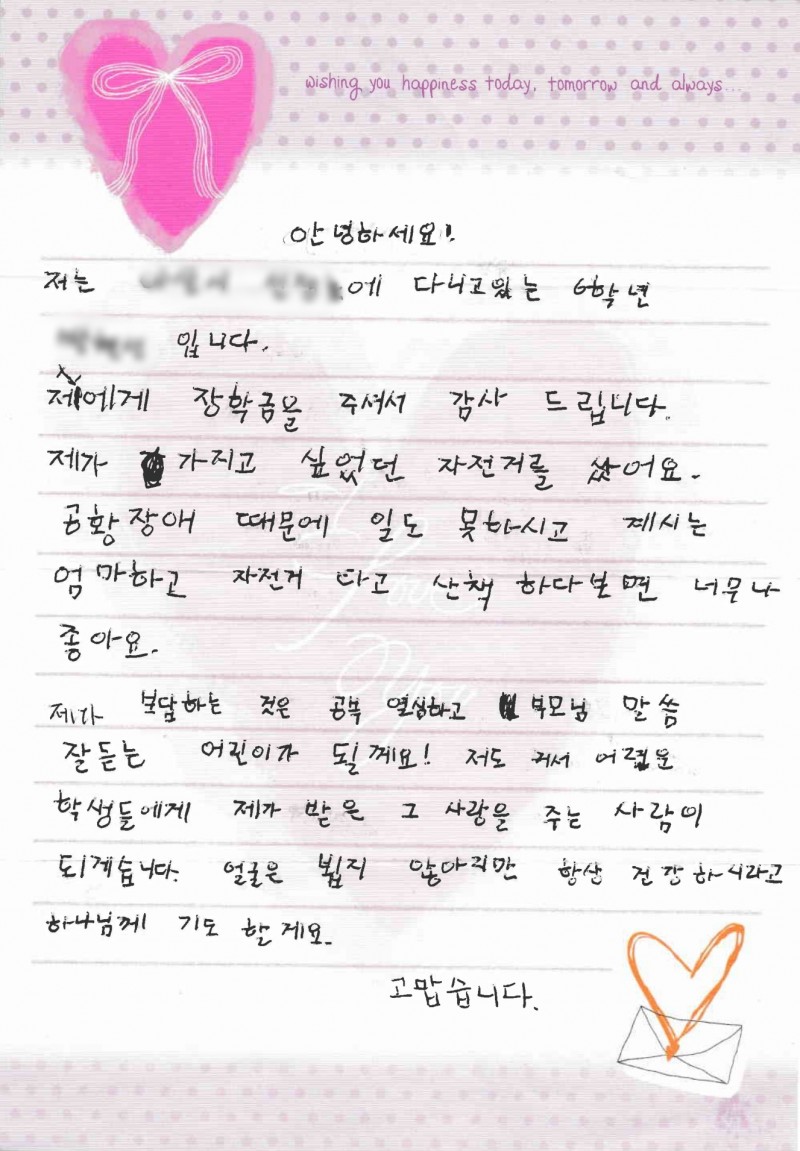 wishing you happiness today, tomorrow and always...
안녕하세요!
저는 에 다니고있는 6학년
입니다.
저에게 장학금을 주셔서 감사 드립니다.
제가 가지고 싶었던 자전거를 샀어요.
공황장애 때문에 일도 못하시고 계시는
엄마하고 자전거 타고 산책 하다보면 너무나
좋아요.
제가 보답하는 것은 공부 열심하고 부모님 말씀
잘듣는 어린이가 될께요! 저도 커서 어려운
학생들에게 제가 받은 그 사랑을 주는 사람이
되게습니다. 얼굴은 뵙지 않아지만 항상 건강하시라고
하나님께 기도 할게요.
고맙습니다.
I Love You